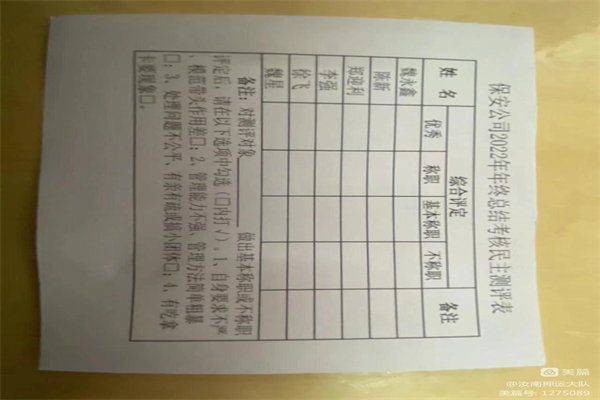 保安公司2022年年终总结考核民主测评表
姓 名 综合评定 备注
优秀 称职 基本称职 不称职
魏永鑫
陈新
郑迎利
李强
徐飞
魏星
备注：对测评对象 做出基本称职或不称职
评定后，请在以下选项中勾选（口内打√）。1、自身要求不严
、模范带头作用差口；2、管理能力不强、管理方法简单粗暴
口；3、处理问题不公平、有亲有疏或搞小团体口；4、有吃拿
卡要现象口。
美篇
@汝南押运大队
美篇号：1275089